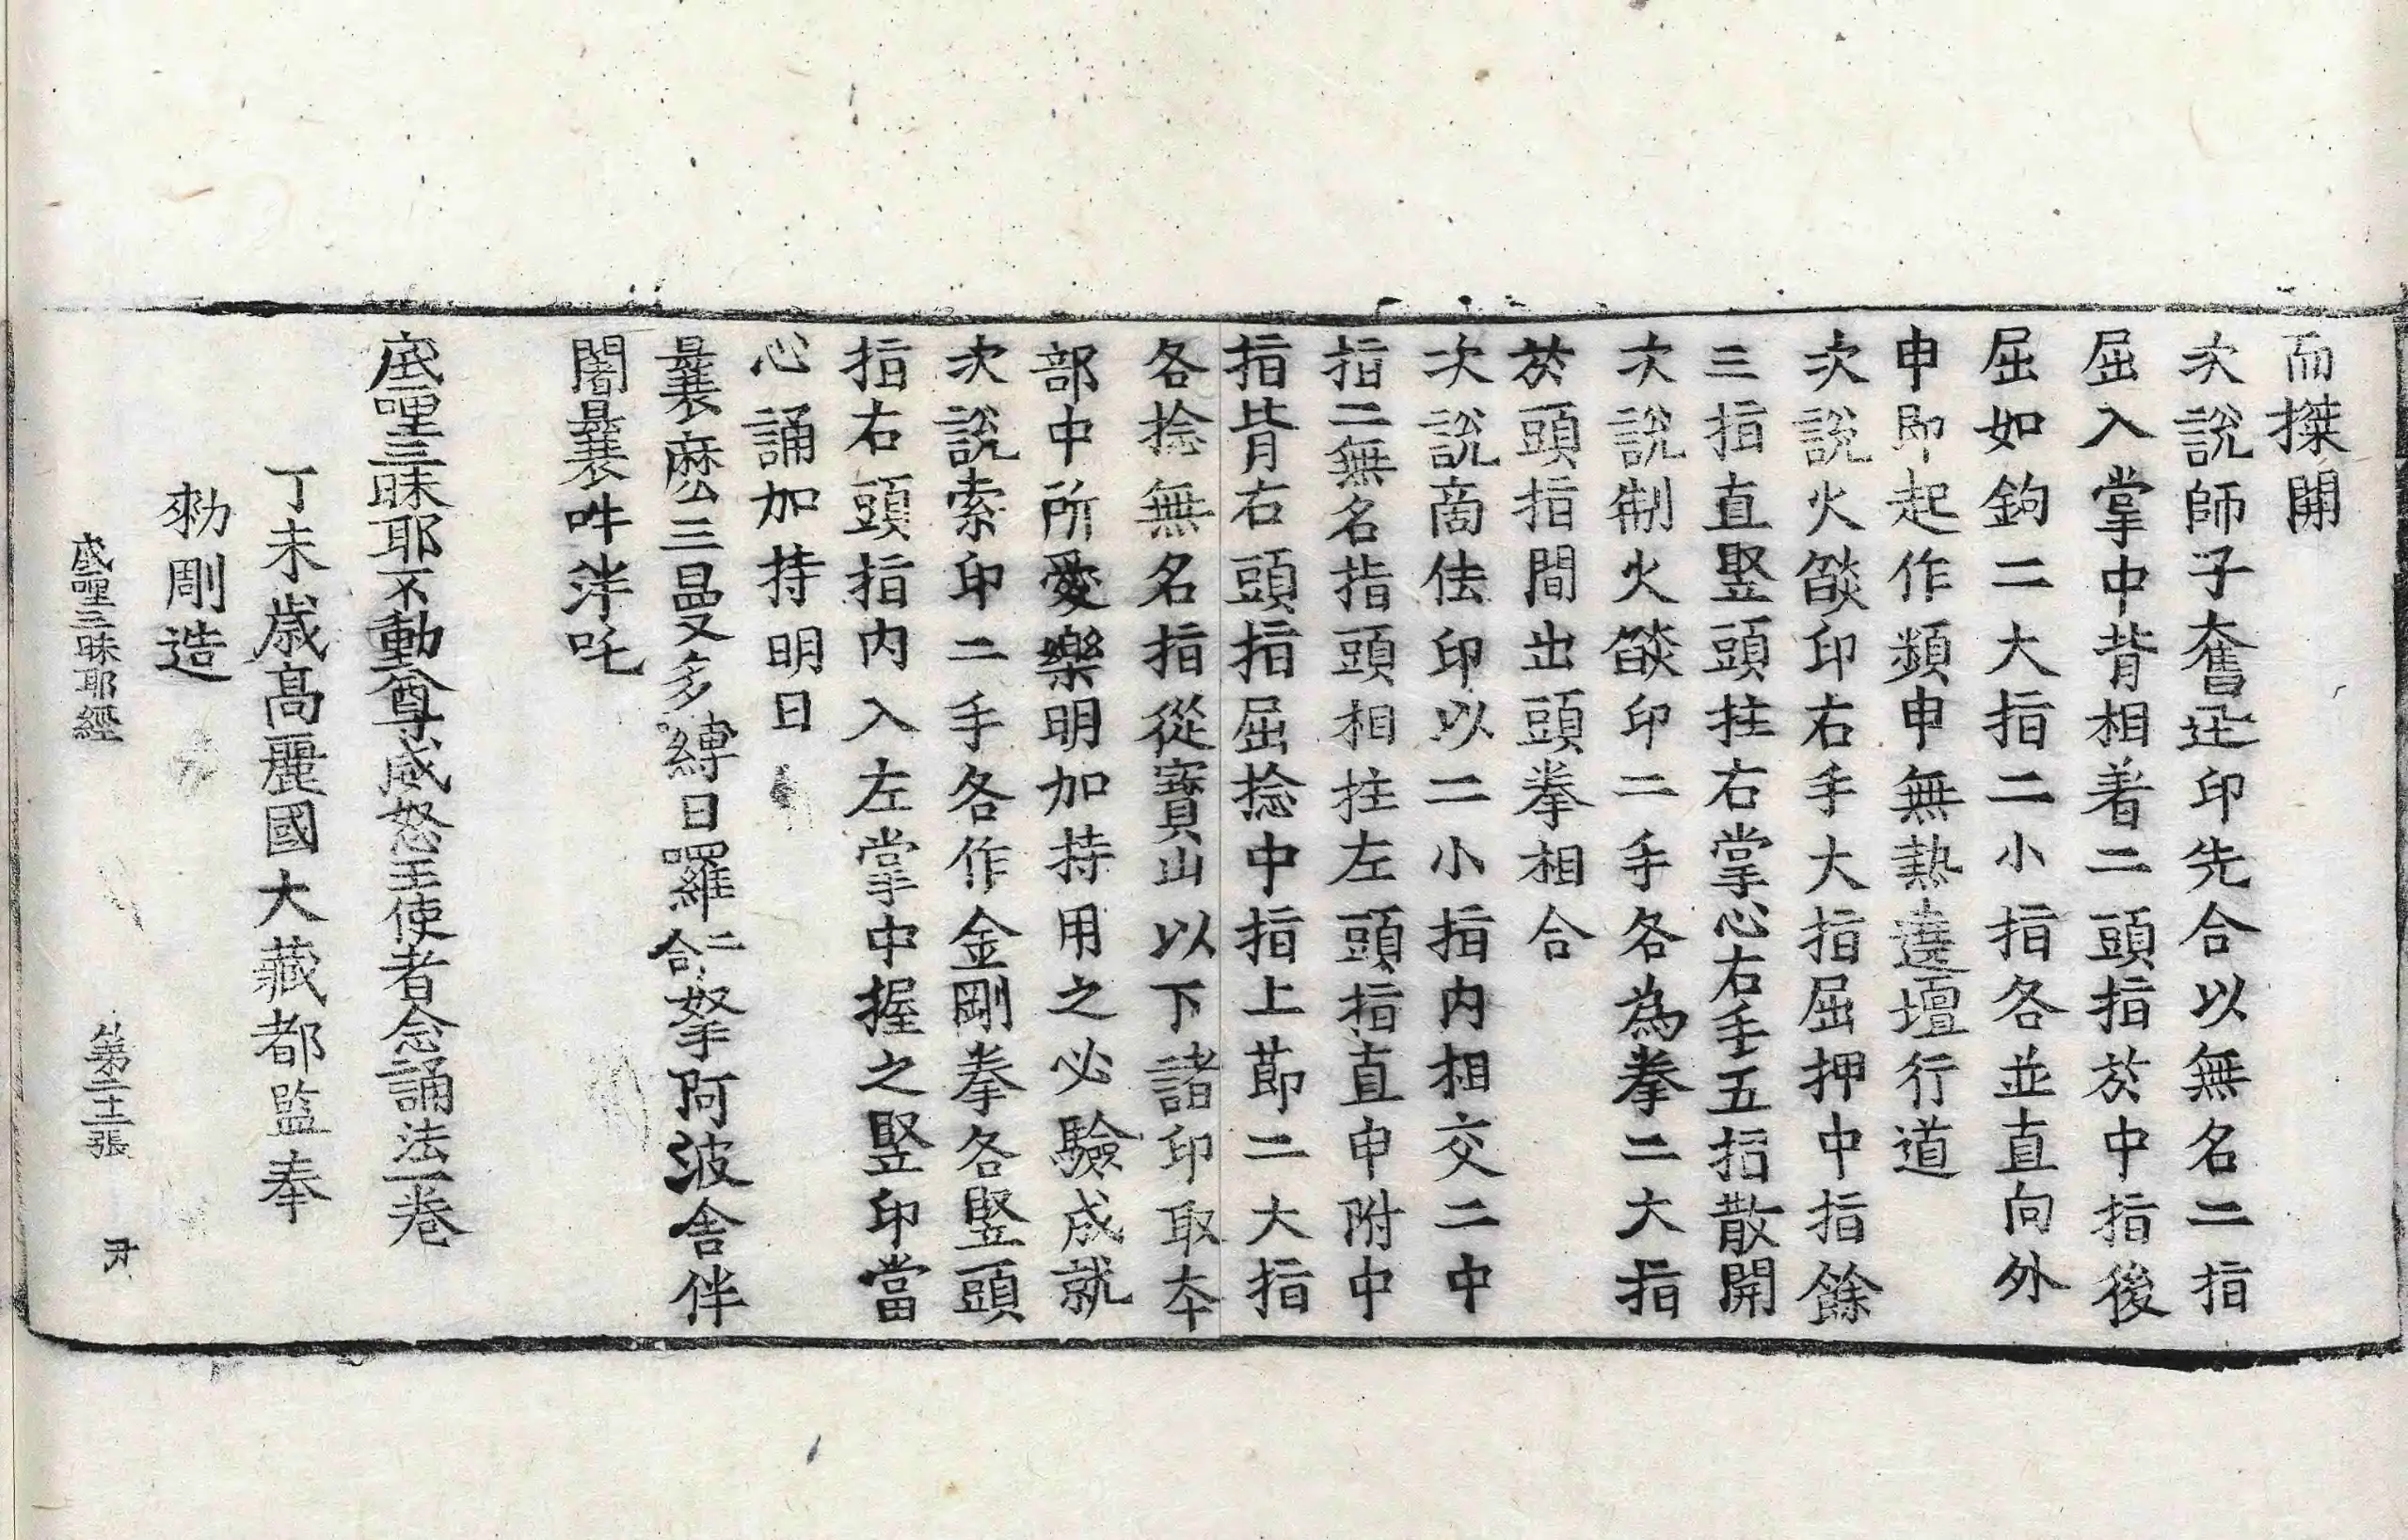 而搩開
次說師子奮迅印先合以無名二指
屈入掌中背相著二頭指於中指後
屈如鉤二大指二小指各並直向外
申即起作頻申無熱遶壇行道
次說火燄印右手大指屈押中指餘
三指直竪頭拄右掌心右手五指散開
次說制火燄印二手各為拳二大指
於頭指間出頭拳相合
次說商佉印以二小指內相交二中
指二無名指頭相拄左頭指直申附中
指背右頭指屈捻中指上節二大指
各捻無名指從寶山以下諸印取本
部中所愛樂明加持用之必驗成就
次說索印二手各作金剛拳各竪頭
指右頭指內入左掌中握之竪印當
心誦加持明曰
曩麽三曼多縛日羅二合拏阿波舍伴
闍曩吽泮吒
底哩三昧耶不動尊威怒王使者念誦法一卷
丁未歳高麗國大藏都監奉
勑剛造
底哩三昧耶經 第二十二張